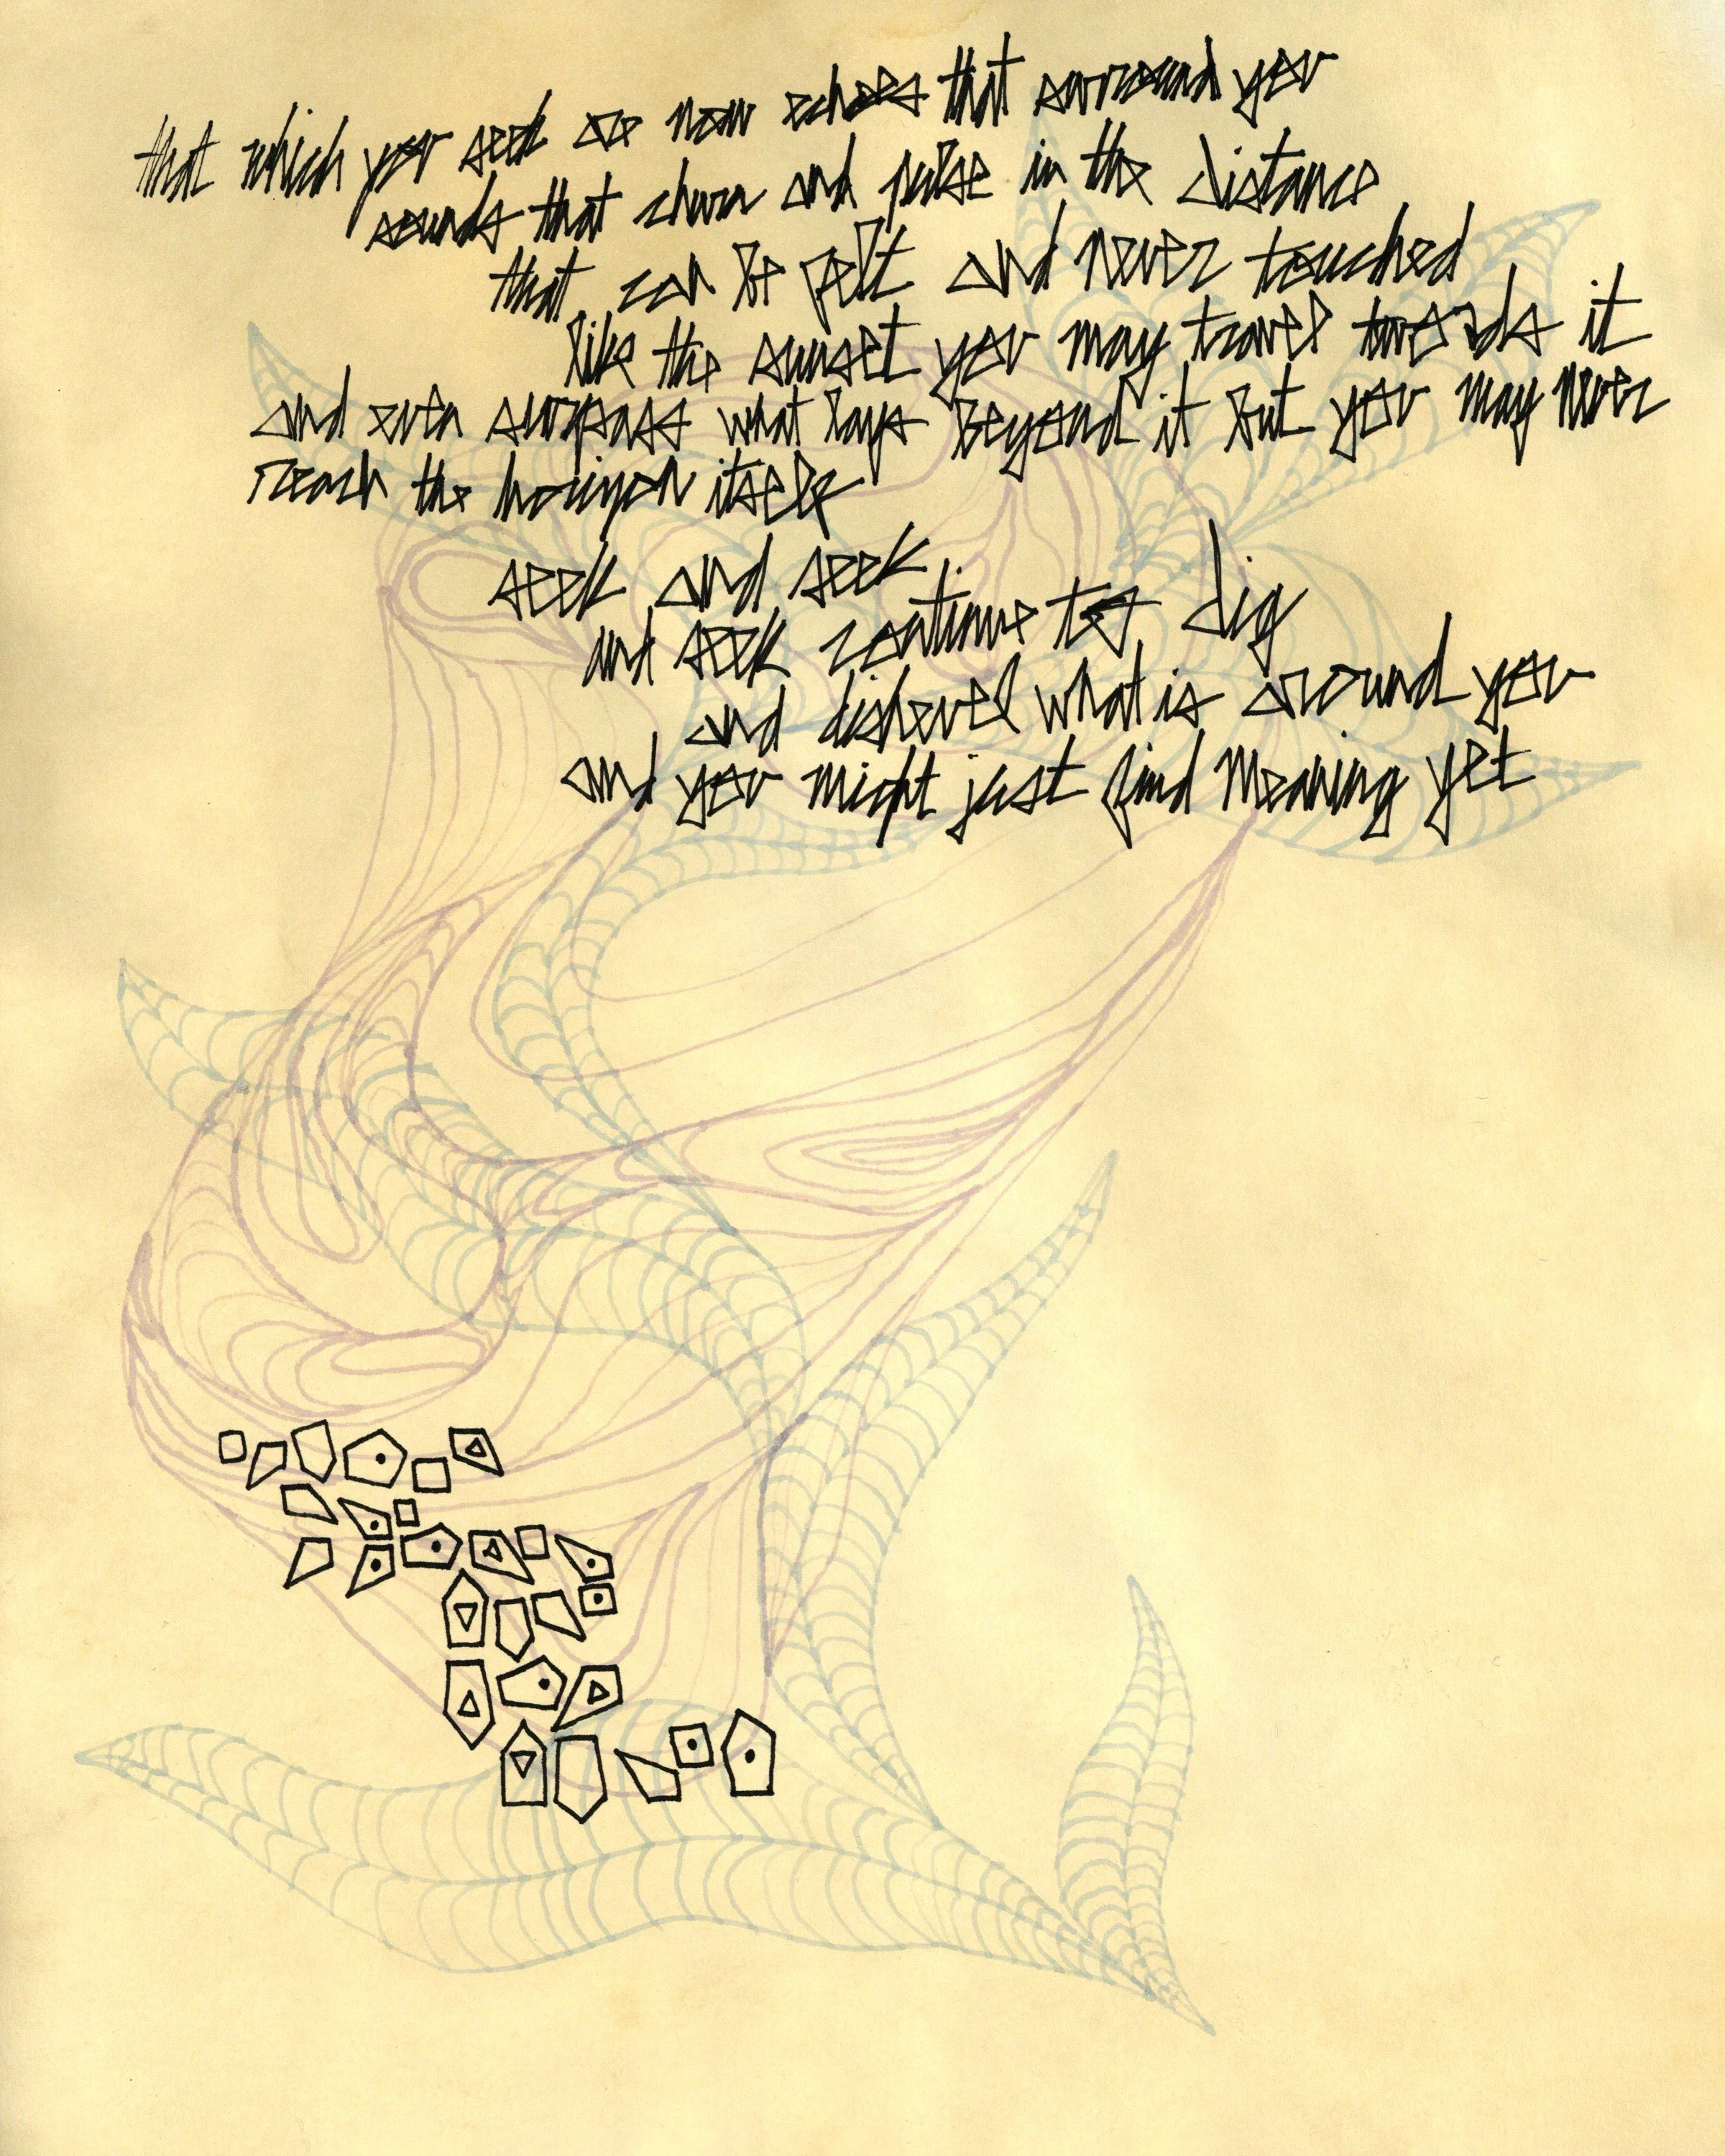 that which you seek are now echoes that surround you
sounds that churn and pulse in the distance
that can be felt and never touched
like the sunset you may travel towards it
and even surpass what lays beyond it but you may never
reach the horizon itself
seek and seek
and seek continue to dig
and dishevel what is around you
and you might just find meaning yet